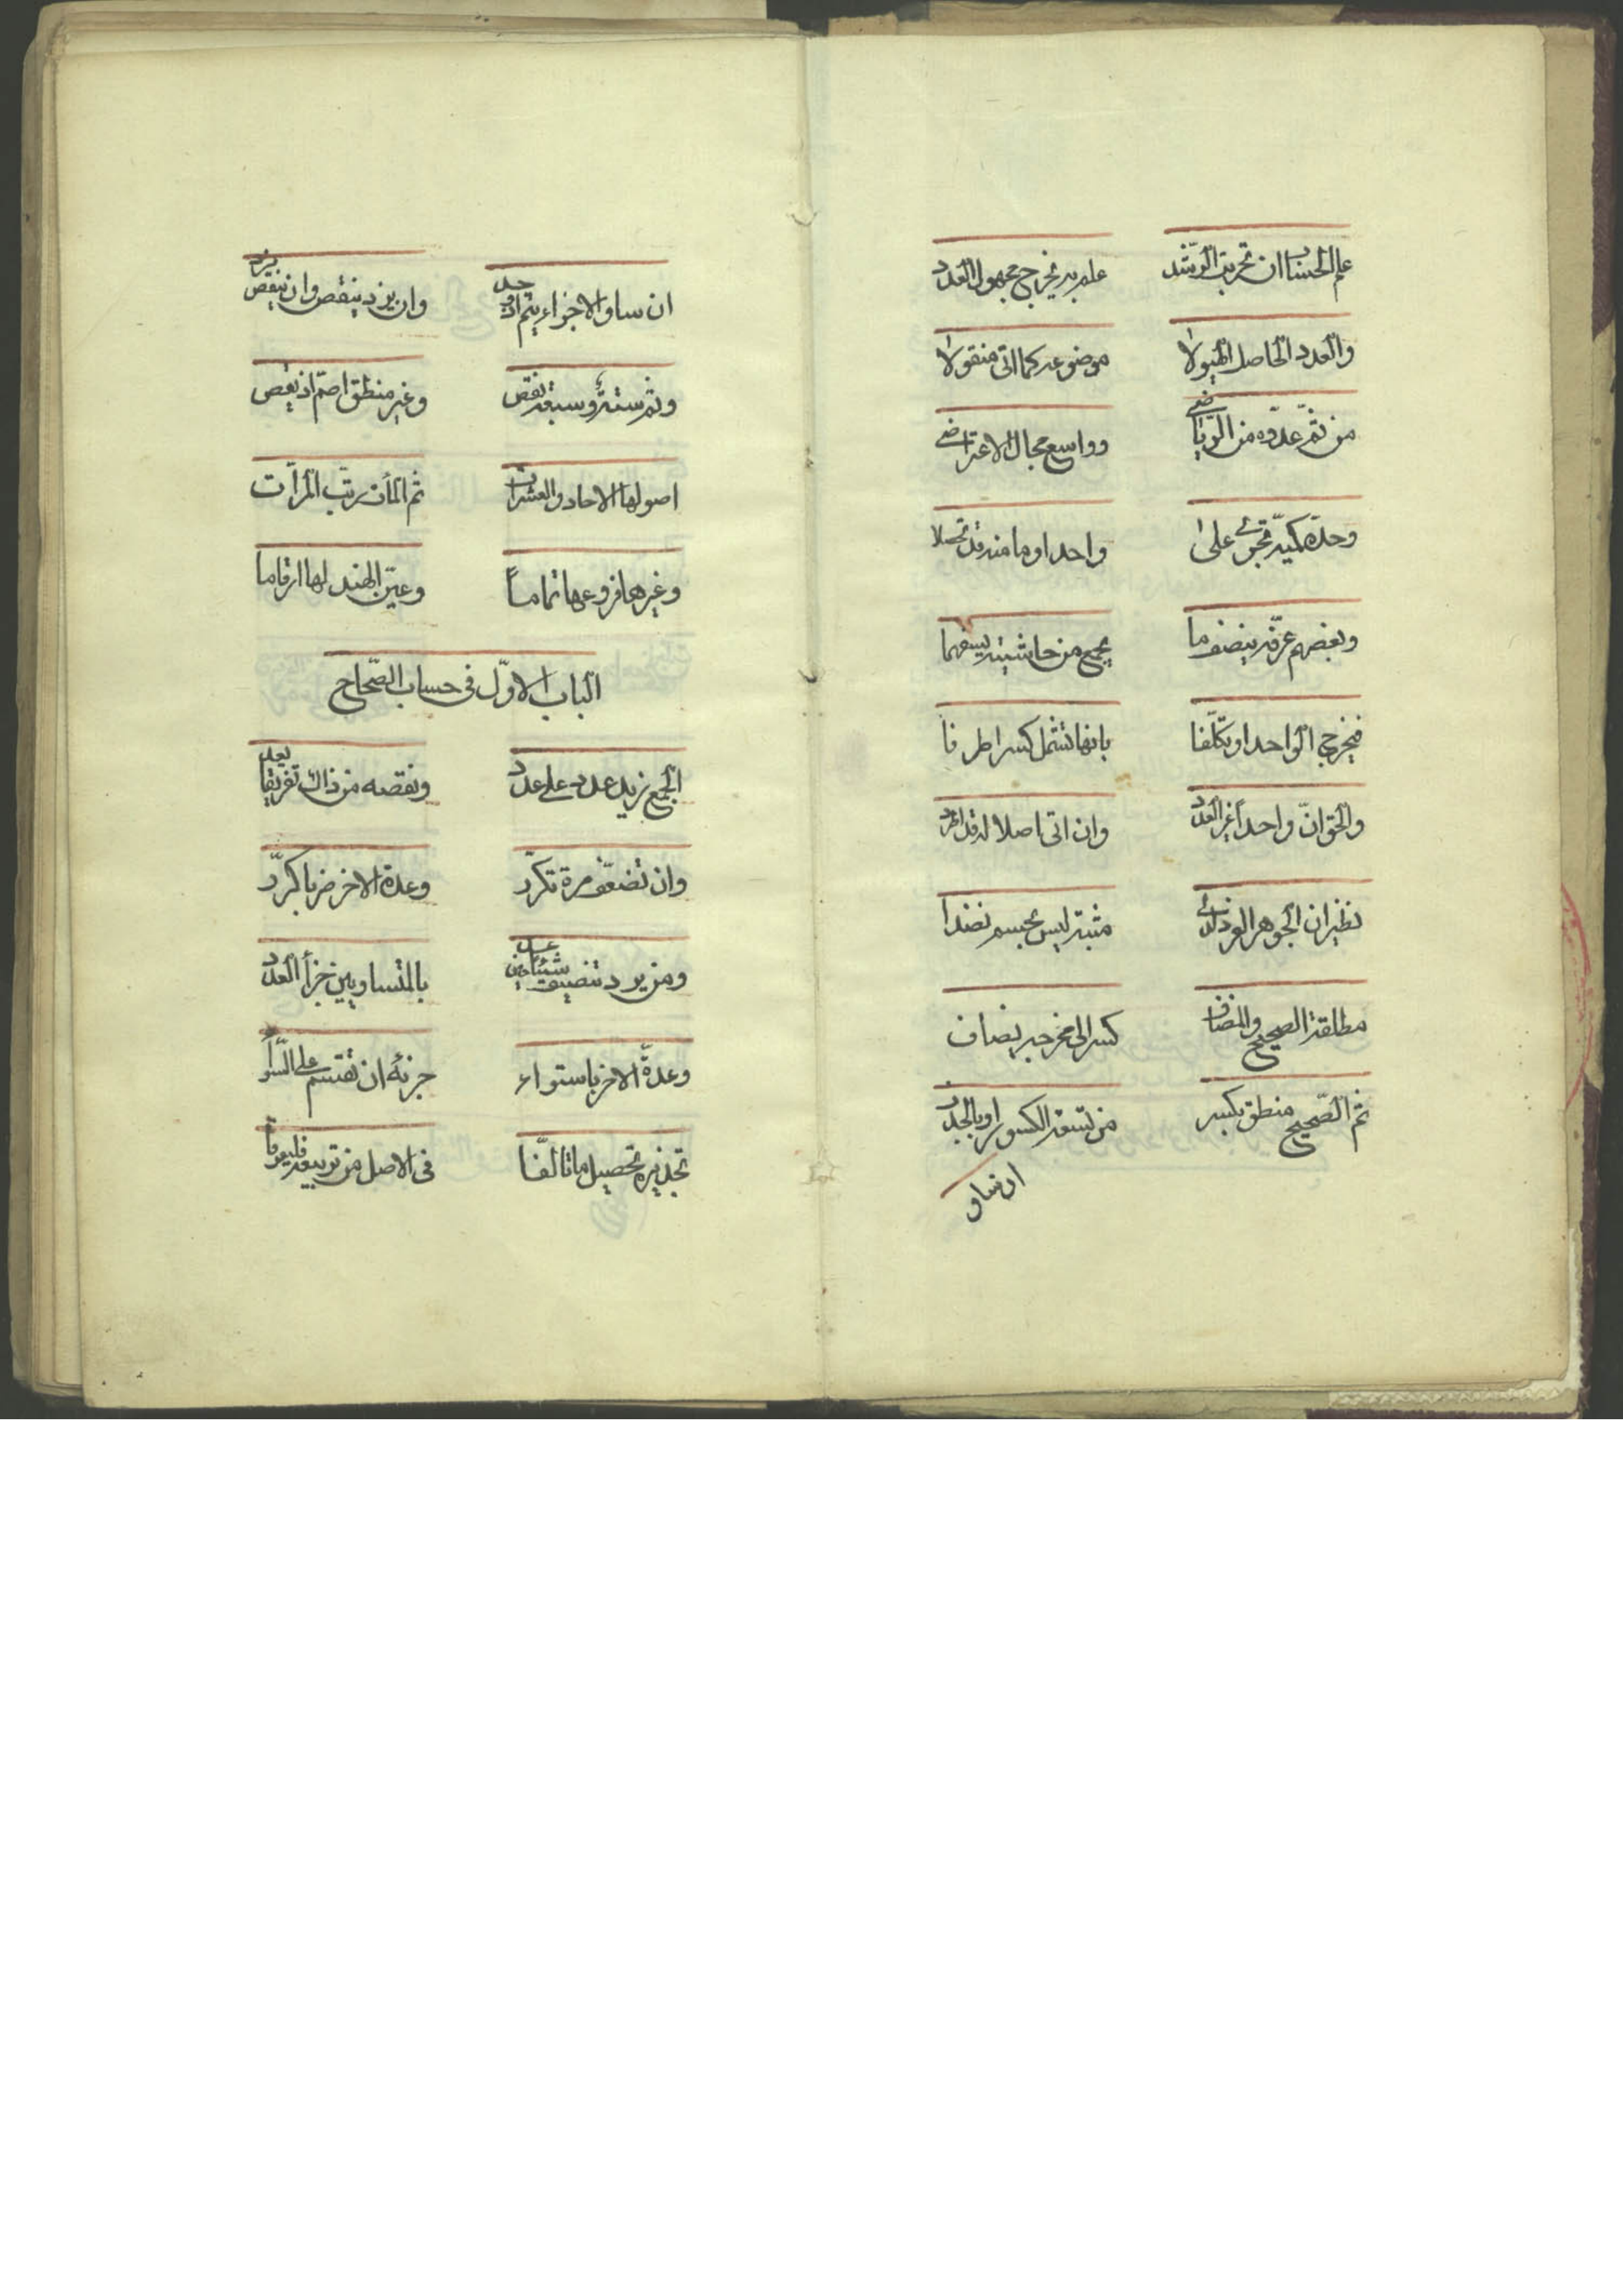 علم الحساب ان تحريت الرشد علم به يخرج مجهول العدد
والعدد الحاصل الهيولا موضوعه كما اتى منقولا
من ثمّ عدّوه من الرّياضى وواسع مجال الاعتراضى
وحدّه كميّة تجرى على واحد او ما منه قد تحصلا
وبعضهم عرّفه بنصف ما يجمع من حاشيتيه
فيخرج الواحد او تكلّفا بانها تشمل كسرا طرفا
والحق انّ واحداً غير العدد وان اتى اصلا له قد اطرد
نظير ان الجوهر الفرد لدى مثبته ليس بجسم نضدا
مطلقة الصحيح والمضاف كسر الى مخرجه يضاف
ثم الصّحيح منطق بكسر من تسعة الكسور او بالجذر
ان ساو
ان ساو الاجزاء يتم وان يزد ينقص وان ينقص يزد
وتمّ ستة وسبعة نقص وغير منطق اصم اذ
اصولها الاحاد والعشرات ثم المأت رتب المرّات
وغيرها فروعها تماماً وعيّن الهند لها ارقاما
الباب الاوّل فى حساب الصّحاح
الجمع زيد عدد على عدد ونقصه من ذاك تفريقا يعد
وان تضعّف مرة تكرّر وعدة الاخر ضربا كرّر
ومن يرد تنصيف شئ بالمتساويين جزأ العدد
وعدّة الاخر باستواء جزئه ان تقتسم على السّواء
تجذيره تحصيل ما تالّفا فى الاصل من تربيعه